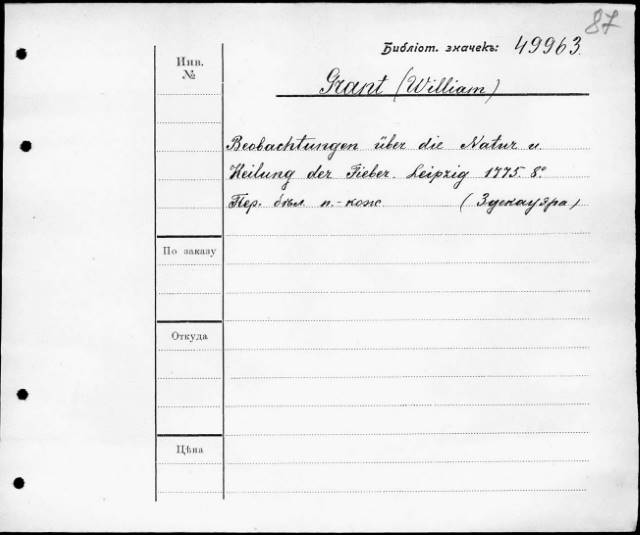 87
Библіот. значекъ: 49963.
Инв.
№
Grant (William)
Beobachtungen über die Natur u.
Heilung der Fieber. Leipzig 1775. 8°
Пер. бѣл. п.-кож. (Здекауэра)
По заказу
Откуда
Цѣна